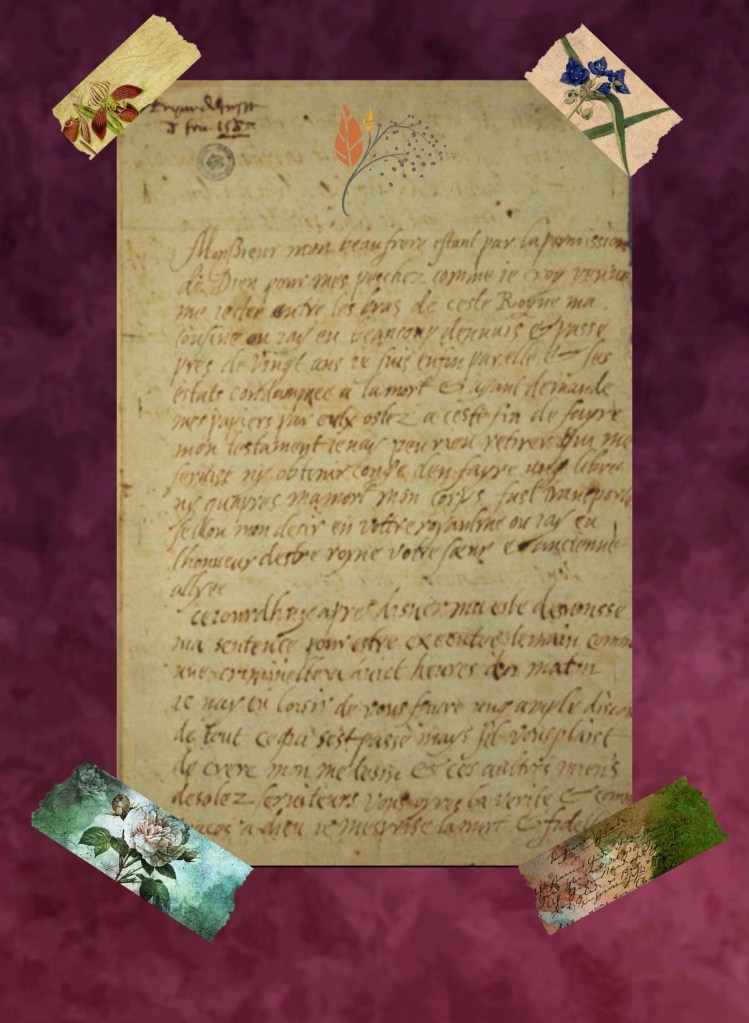 8 feu 1587
Monssieur mon beau frere estant par la permission
de Dieu pour mes peschez comme ie croy venue
me iecter entre les bras de ceste Royne ma
cousine ou iay eu beaucoup dennuis & passe
pres de vingt ans ie suis enfin par elle & ses
estats condampnee a la mort & ayant demande
mes papiers par eulx ostez a ceste fin de fayre
mon testament ie nay peu rien retirer qui me
seruist ny obtenir conge den fayre ung libre
ny quapres ma mort mon corps fust transporte
sellon mon desir en votre royaulme ou iay eu
lhonneur destre royne votre sœur & ancienne
allyee
ceiourdhuy apres disner ma este desnonsse
ma sentence pour estre executee demain comme
une criminelle a huict heures du matin
ie nay eu loisir de vous fayre ung ample discou
de tout ce qui sest passe mays sil vous plaist
de crere mon medesin & ces aultres miens
desolez seruiteurs vous oyres la verite & comm
graces a dieu ie mesprise la mort & fidelle